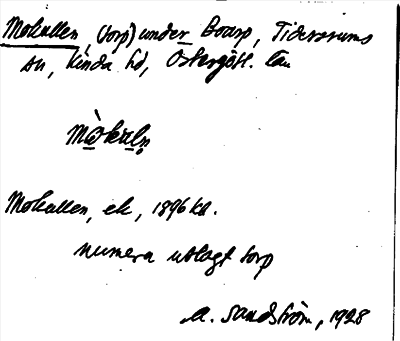 Mokullen, (torp) under Boarp, Tidersrums
sn, Kinda hd, Östergötl. län
mòkuln
Mokullen, ek, 1896 kl.
numera utlagt torp
A. Sandström, 1928